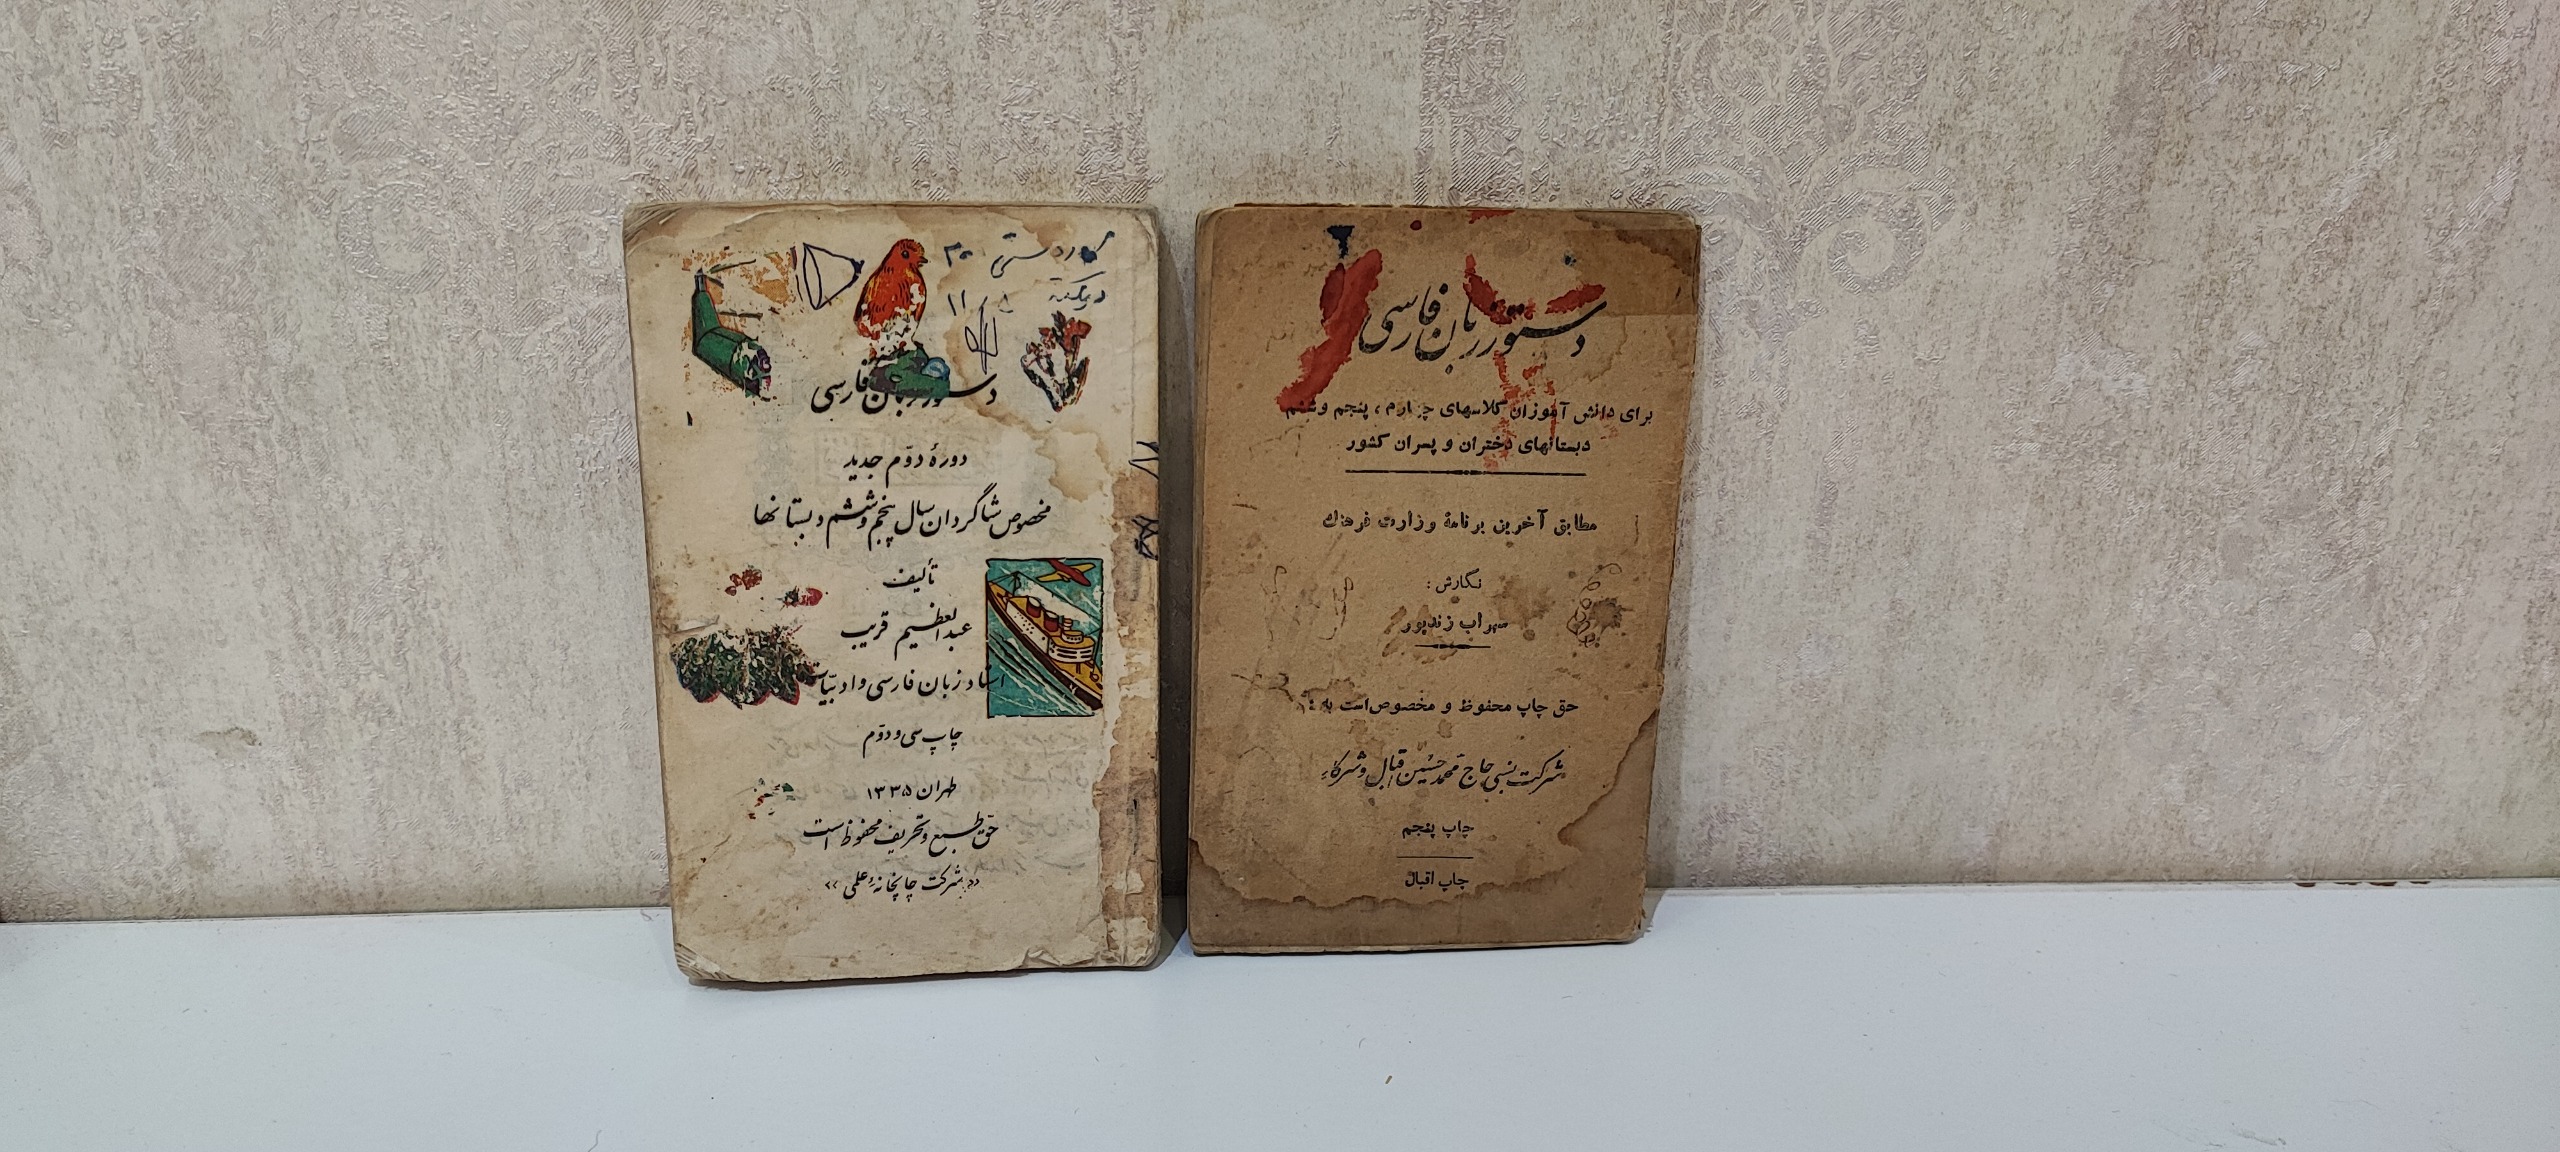 دستور زبان فارسی
دورهٔ دوّم جدید
مخصوص شاگردان سال پنجم و ششم دبستانها
تألیف
عبدالعظیم قریب
استاد زبان فارسی و ادبیّات
چاپ سی و دوّم
طهران ۱۳۳۵
حقّ طبع و تحریف محفوظ است
«شرکت چاپخانهٔ علمی»
دستور زبان فارسی
برای دانش آموزان کلاسهای چهارم ، پنجم و ششم
دبستانهای دختران و پسران کشور
مطابق آخرین برنامهٔ وزارت فرهنگ
نگارش :
سهراب زندپور
حق چاپ محفوظ و مخصوص است به :
شرکت نسبی حاج محمد حسین اقبال و شرکاء
چاپ پنجم
چاپ اقبال